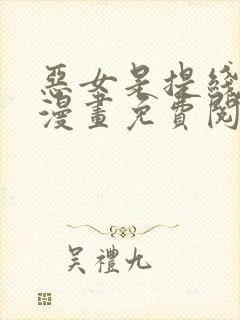 惡女是提綫
漫畫免費閱
吳禮九